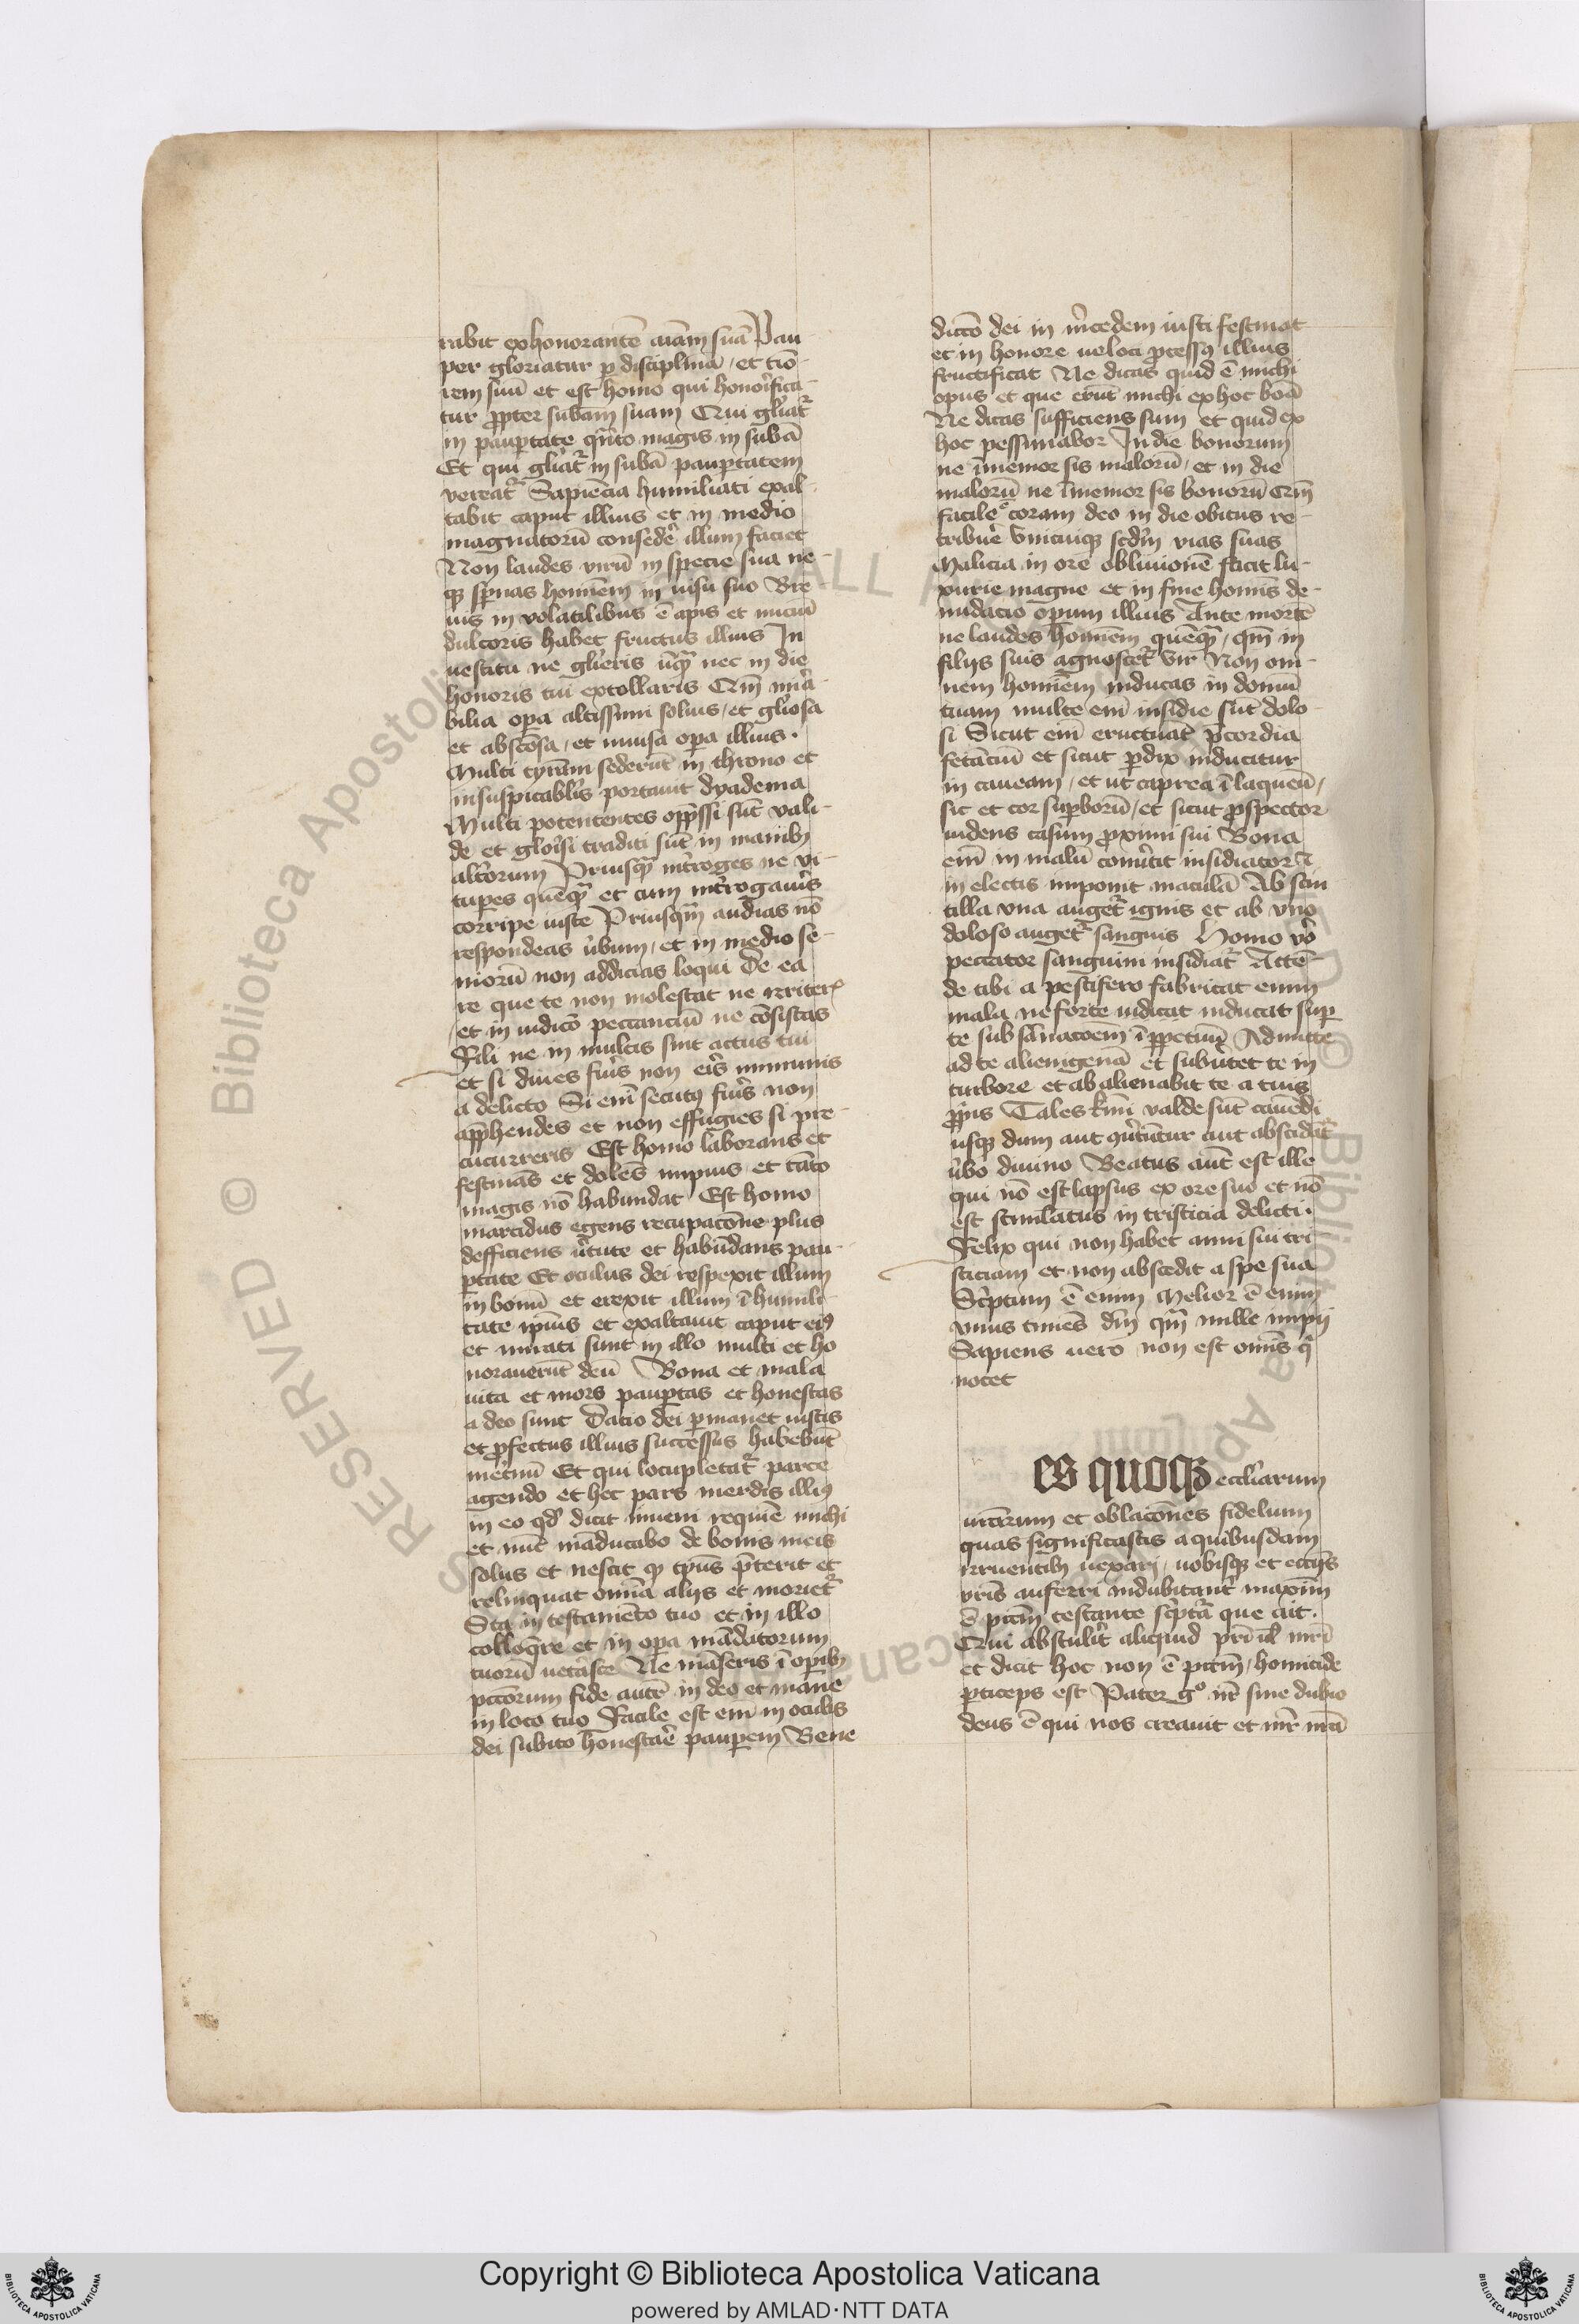 rabit exhonorantē aīam suā Pau-
per gloriatur p disciplinā / et tiō
rem suū et est homo qui honorifica-
tur ꝓpter subam suam Qui gl'iat'
in paupertate q̄nto magis in subā
Et qui gl'iat' in subā paupertatem
vereat' Sapiēcia humiliati exal-
tabit caput illius et in medio
magnatorū consedē illum faciet
Non laudes virū in specie sua ne-
qꝫ spernas hoīnem in uisu suo Bre-
uis in volatilibus ē apis et iniciū
dulcoris habet fructus illius In
uestitu ne gl'ieris ūqꝫ nec in die
honoris tui extollaris Qm̄ mira
bilia opa altissimi solius / et gl'iosa
et absco͞sa / et inuisa opa illius .
Multi tyra͞ni sederūt in throno et
insuspicabl'is portauit dyadema
Multi potententes opp̄ssi sūt vali-
de et glo͞isi traditi sūt in manibꝫ
alt'orum Priusqꝫ int'roges ne vi-
tupes quēqꝫ et cum int'rogau'is
corripe iuste Priusqm̄ audias nō
respondeas ūbum / et in medio se-
niorū non addicias loqui De ea
re que te non molestat ne crteris
et in iudicō peccanciū ne co͞sistas
Fili ne in multis sint actus tui
et si diues fu'is non eris immunis
a delicto Si eni͞ secutꝰ fu'is non
app̄hendes et non effugies si pre-
cucurreris Est homo laborans et
festinās et dolēs impius et tāto
magis nō habundat Est homo
marcidus egens recupacōne plus
defficiens ūtute et habūdans pau-
ptate Et oculus dei respexit illum
in bonū et erexit illum ī humili-
tate ipius et exaltauit caput eiꝰ
et mirati sunt in illo multi et ho
norauerūt deū Bona et mala
uita et mors paupertas et honestas
a deo sunt Datio dei pmanet iustis
et ꝓfectus illius successus habebūt
et'nū Et qui locupletat' parce
agendo et hec pars m'cedis illiꝰ
in eo qd' dicit inueni requiē michi
et nūc māducabo de bonis meis
solus et nescit qꝫ tp̄us p̄terit et
relinquat omīa alijs et moriet'
Sta in testamēto tuo et in illo
colloq̄re et in opa mādatorum
tuorū uet'asce Ne mā̄seris ī opibꝫ
pccōrum fide aut͞ in deo et mane
in loco tuo Facile est eni͞ in oculis
dei subito honestar̄e pauperem Bene
diccō dei in m̄cedem iusti festinat
et in honore ueloci ꝓcessꝰ illius
fructificat Ne dicas quid ē michi
opus et que erūt michi ex hoc bōa
Ne dicas sufficiens sum et quid ex
hoc pessimabor In die bonorum
ne īmemor sis malorū / et in die
malorū ne īmemor sis bonorū Qm̄
facile ē coram deo in die obitus re-
tribuēr vnicuiqꝫ scdm̄ vias suas
Malicia in ore obliuionē facit lu-
xurie magne et in fine homīs de-
nudacio opum illius Ante mortē
ne laudes hoīnem quēqꝫ / qm̄ in
filijs suis agnoscet' vir Non om-
nem hoīnem inducas in domū
tuam multe eni͞ insidie sūt dolo-
si Sicut eni͞ eructuat p̄cordia
fetāciū et sicut pdix inducitur
in caueam / et ut caprea ī laqueū /
sic et cor supborū / et sicut ꝓspector
uidens casum ꝓximi sui Bona
eni͞ in malū conu'tit insidiator ī
in electis imponit maculā Ab scin
tilla vna auget' ignis et ab vno
doloso auget' sanguis Homo vō
peccator sanguini insidiat' Attē-
de tibi a pestifero fabricat enim
mala ne forte inducat inducat sup
te subsa͞nacōem ī ppetuū Admitte
ad te alienigenā et subu'tet te in
turbore et abalienabit te a tuis
ꝓprijs Tales kmi͞ valde sūt cauēdi
usqꝫ dum aut 9u'tūtur aut abscidāt'
ūbo diuino Beatus aut͞ est ille
qui nō est lapsus ex ore suo et nō
est stimlatus in tristicia delicti .
Felix qui non habet animi sui tri-
sticiam et non abscedit a spe sua
Sc'ptum ē enim Melior ē enim
vnus timēs dm̄ qm̄ mille impij
Sapiens uero non est omīs q'
nocet
es quoqꝫ eccl'iarum
ur̄arum et oblacōnes fidelium
quas significastis a quibusdam
irruentibꝫ uexari / uobisqꝫ et eccl'ijs
vr̄is auferri indubitant' maximū
ē pctm̄ testante sc'pt'a que ait .
Qui abstulit aliquid pr̄i ul' mr̄i
et dicit hoc non ē pctm̄ / homicide
pticeps est Pater gͦ nr̄ sine dubio
deus ē qui nos creauit et mr̄ nr̄a
Copyright © Biblioteca Apostolica Vaticana
powered by AMLAD·NTT DATA